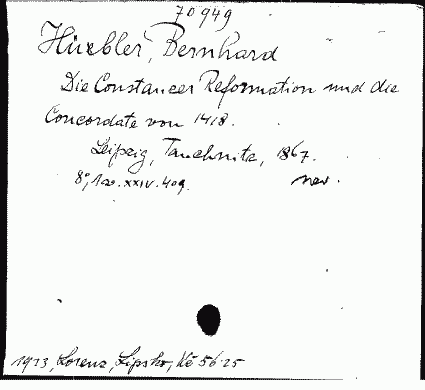 70949
Hüebler, Bernhard
Die Constanzer Reformation und die
Concordate von 1418.
Leipzig, Tauchnitz, 1867.
8°, 1 XXIV. 409. nev.
1923, Lorenz, Lipsko, Kč 56.25